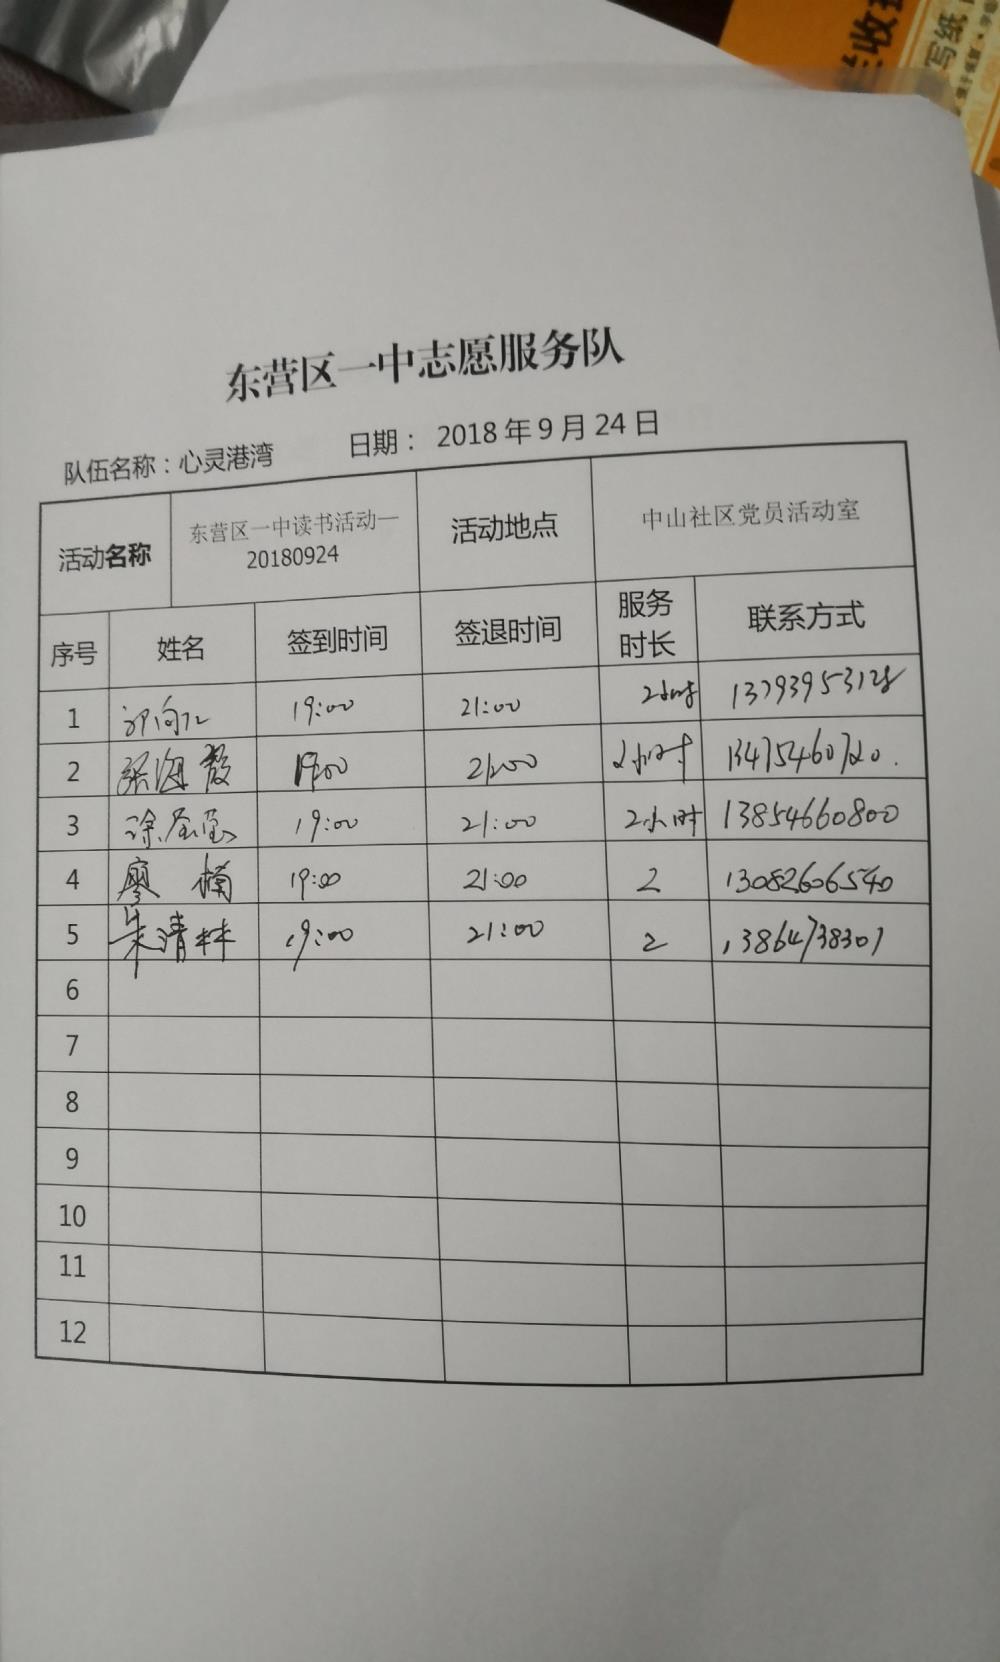 东营区一中志愿服务队
队伍名称：心灵港湾 日期： 2018 年 9 月 24 日
活动名称 东营区一中读书活动—20180924 活动地点 中山社区党员活动室
序号 姓名 签到时间 签退时间 服务时长 联系方式
1 19:00 21:00 2小时
2 张海 19:00 21:00 2小时 13475460720.
3 徐 19:00 21:00 2小时 13854660800
4 廖楠 19:00 21:00 2 13082606540
5 朱清林 19:00 21:00 2 13864738307
6
7
8
9
10
11
12
收
写纸